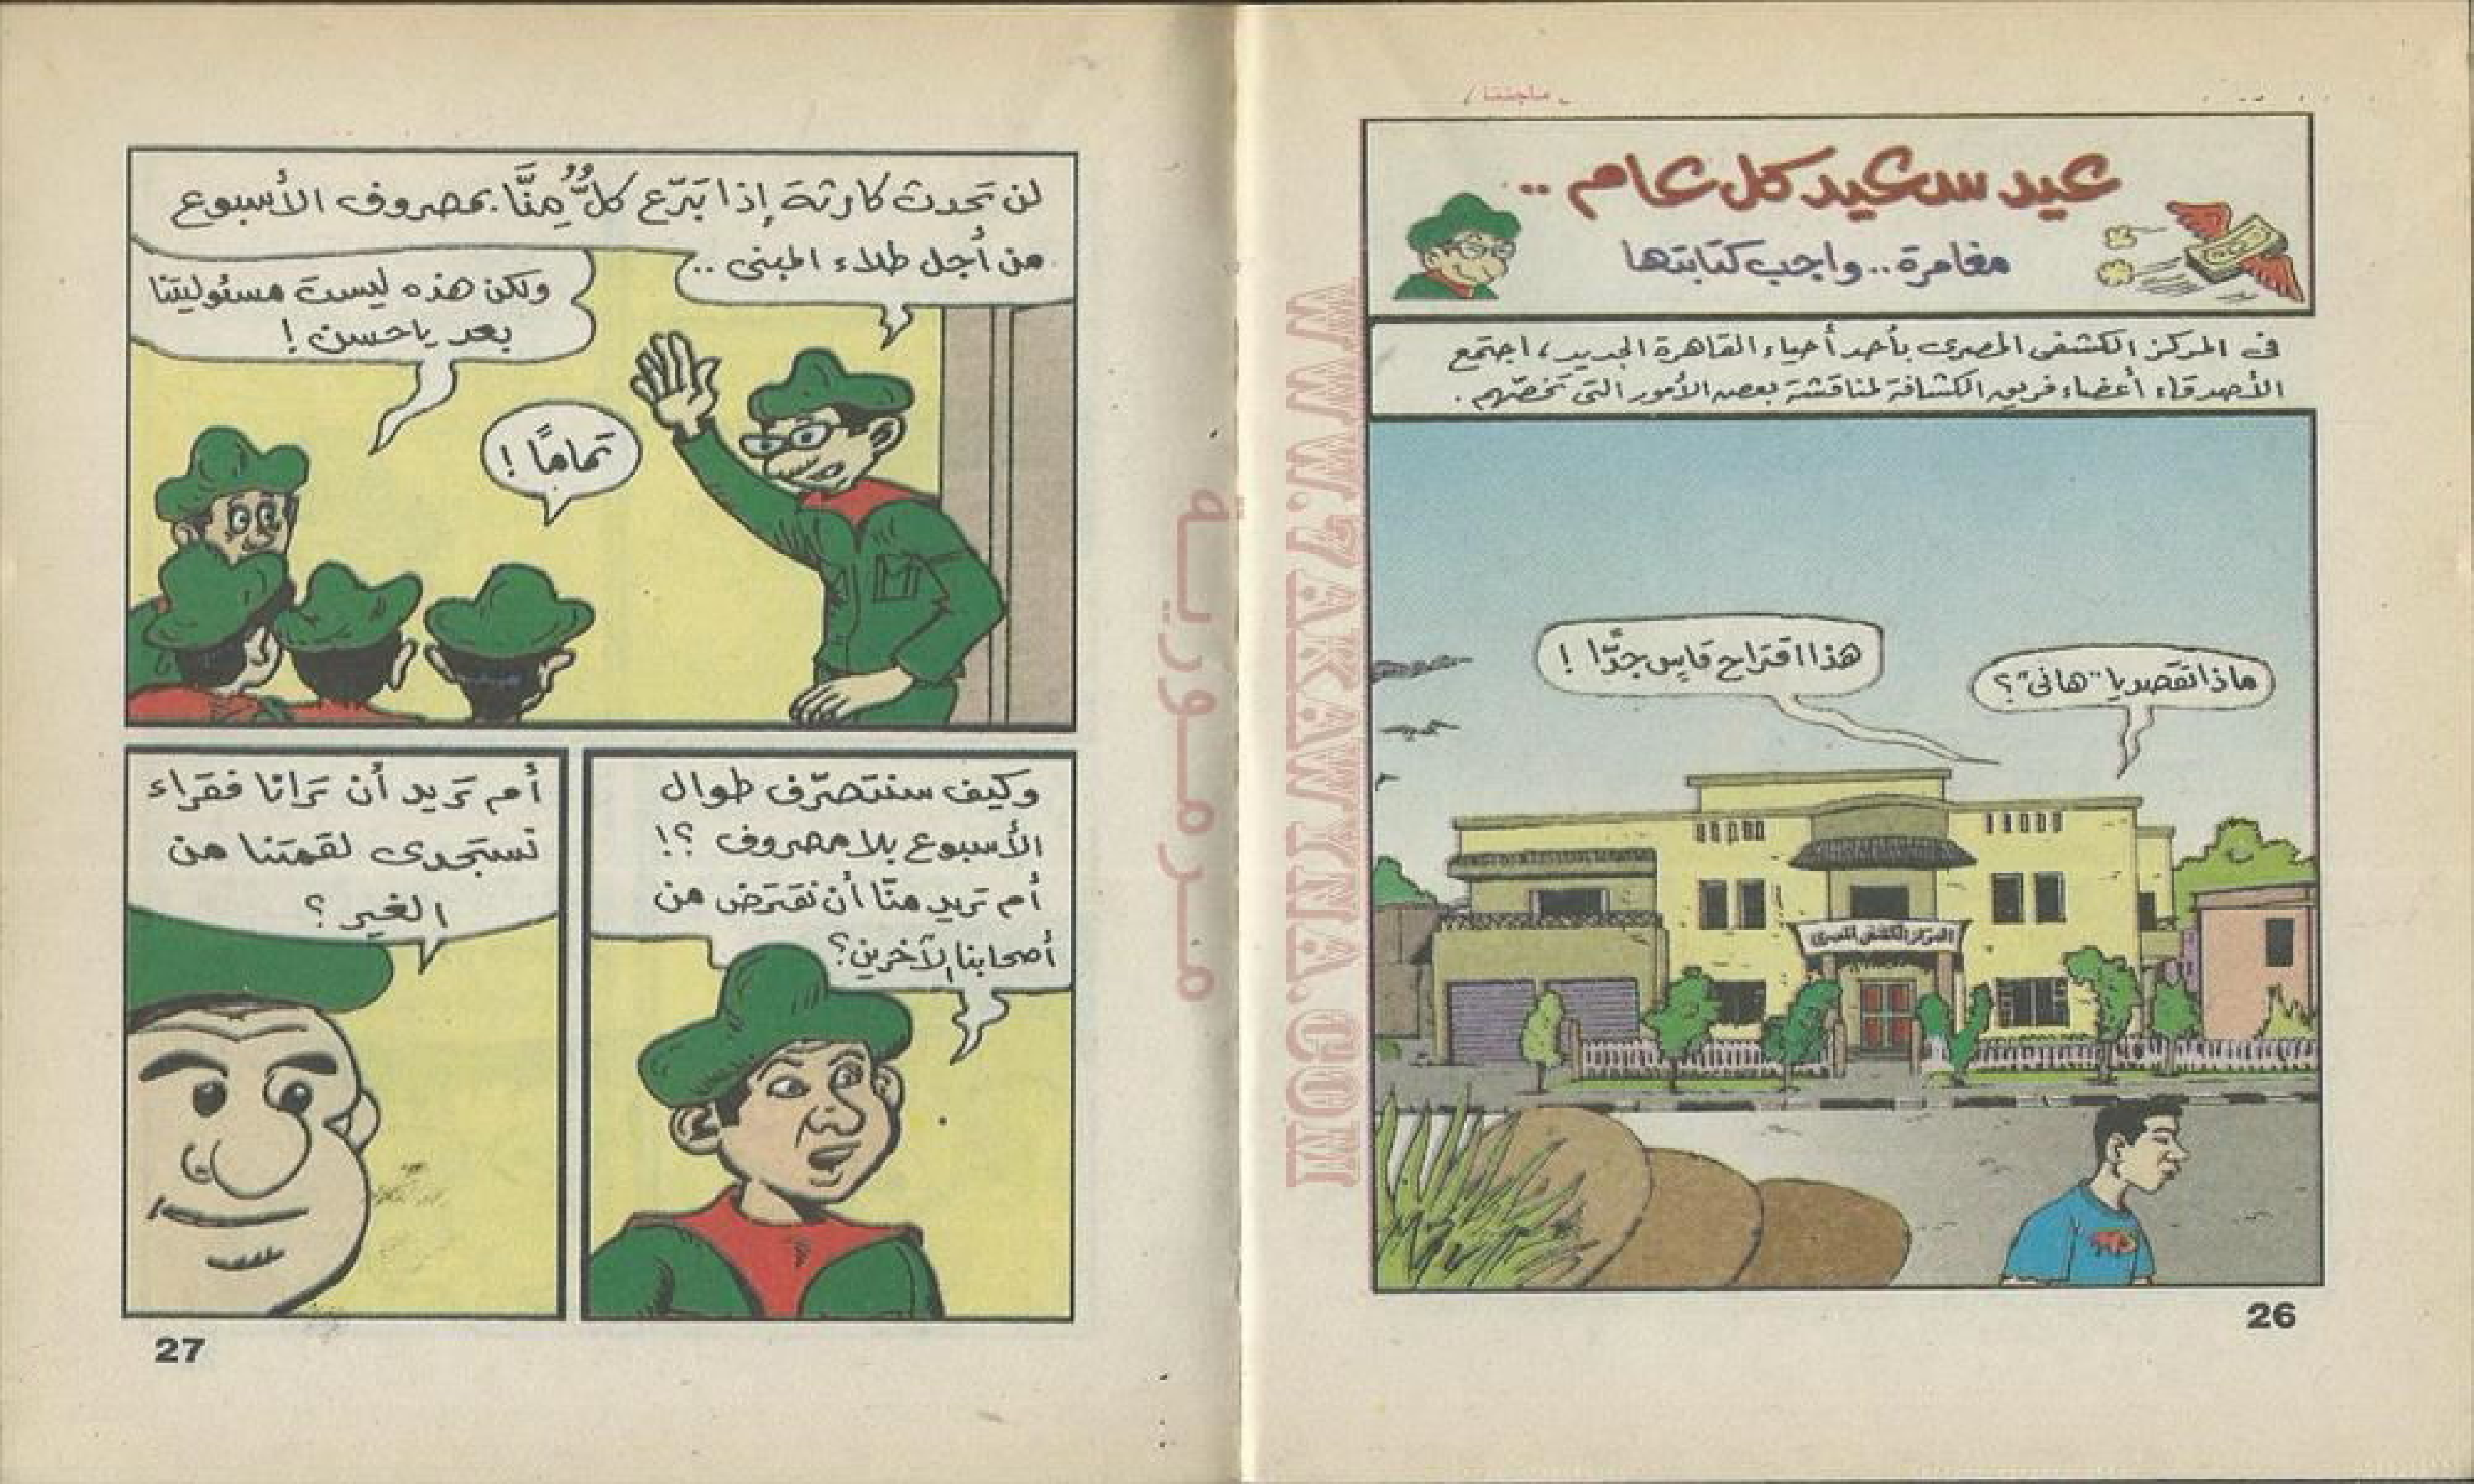 عيد سعيد كل عام ..
مغامرة .. واجب كتابتها
فى المركز الكشفى المصرى بأحد أحياء القاهرة الجديد، اجتمع
الأصدقاء أعضاء فريق الكشافة لمناقشة بعض الأمور التى تخصّهم .
ماذا تقصد يا "هانى"؟
هذا اقتراح قاسٍ جدًّا !
المركز الكشفى المصرى
26
لن تحدث كارثة إذا تبَرّع كلٌّ مِنَّا بمصروف الأسبوع
من أجل طلاء المبنى ..
ولكن هذه ليست مسئوليتنا
بعد يا حسن !
تمامًا !
وكيف سنتصرّف طوال
الأسبوع بلا مصروف ؟!
أم تريد منّا أن نقترض من
أصحابنا الآخرين؟
أم تريد أن ترانا فقراء
نستجدى لقمتنا من
الغير ؟
27
مرمورية
WWW.ZAKAWAYNA.COM